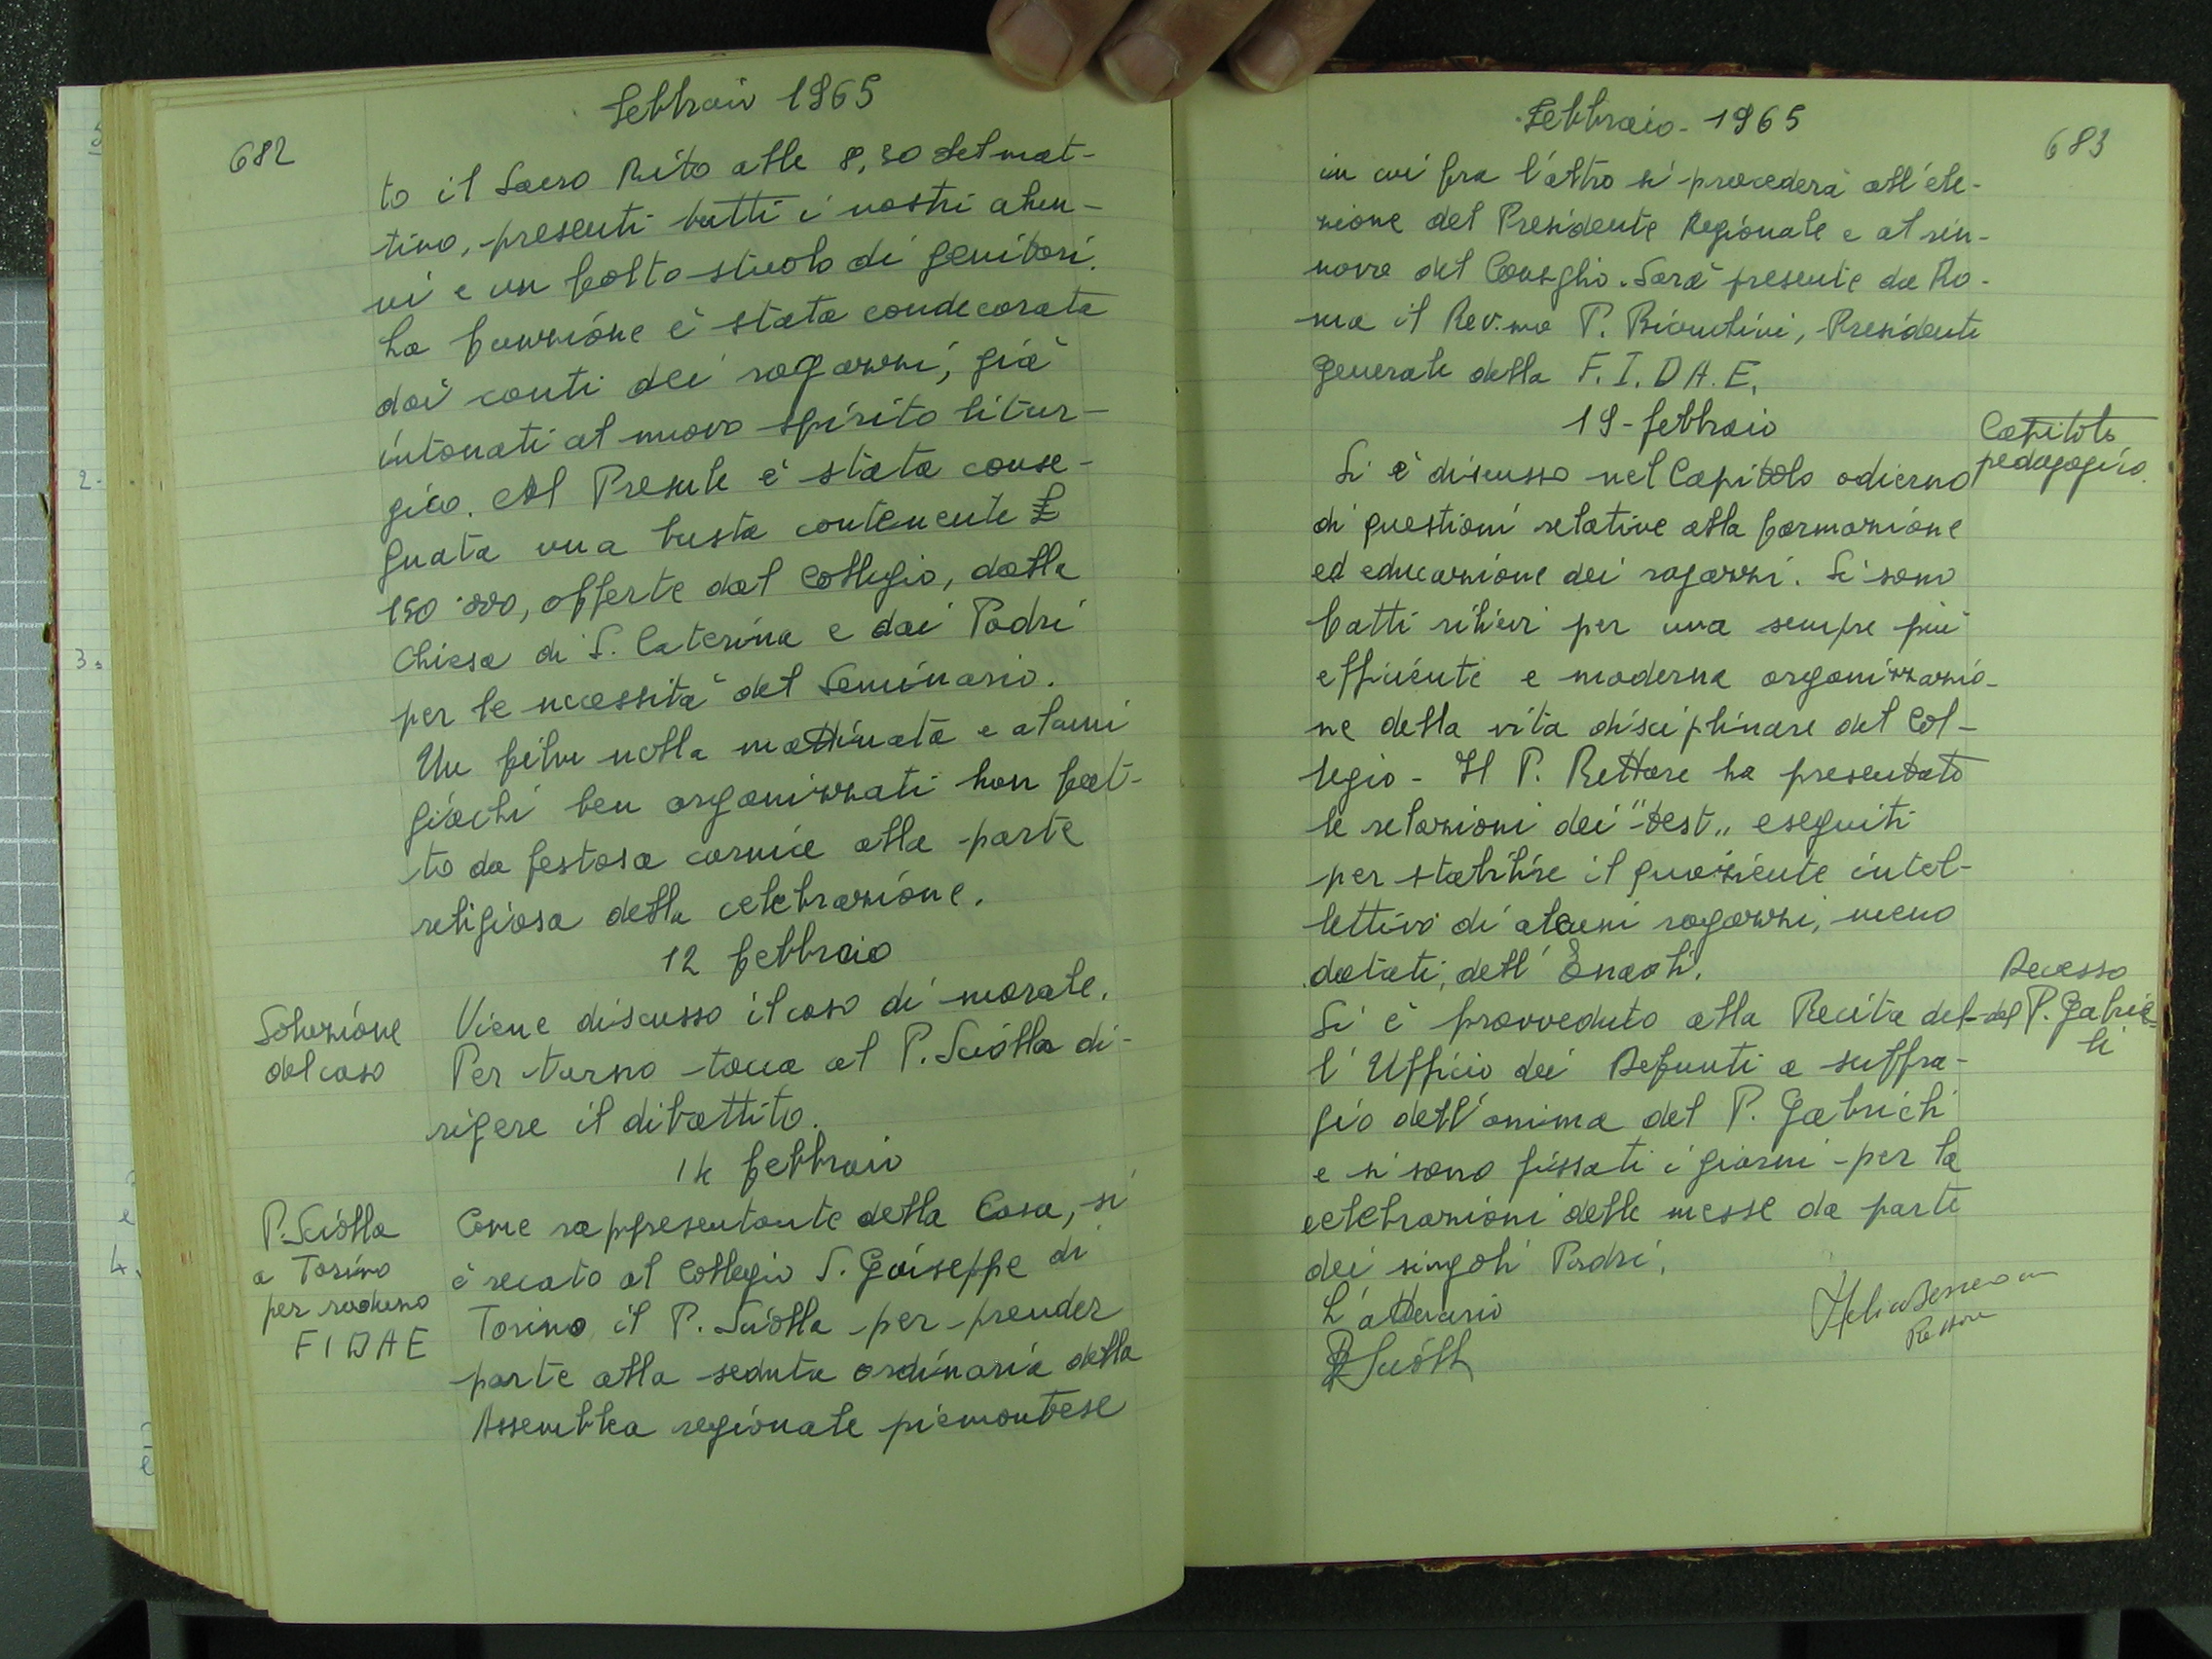 682
Febbraio 1965
to il Sacro Rito alle 8,30 del mat-
tino, presenti tutti i nostri alun-
ni e un folto stuolo di genitori.
La funzione è stata condecorata
dai canti dei ragazzi, già
intonati al nuovo spirito litur-
gico. Al Presule è stata conse-
gnata una busta contenente £
150.000, offerte dal Collegio, dalla
Chiesa di S. Caterina e dai Padri
per le necessità del Seminario.
Un film nella mattinata e alcuni
giochi ben organizzati han fat-
to da festosa cornice alla parte
religiosa della celebrazione.
12 febbraio
Soluzione
del caso
Viene discusso il caso di morale.
Per turno tocca al P. Sciolla di-
rigere il dibattito.
14 febbraio
P. Sciolla
a Torino
per raduno
FIDAE
Come rappresentante della Casa, si
è recato al Collegio S. Giuseppe di
Torino il P. Sciolla per prender
parte alla seduta ordinaria della
Assemblea regionale piemontese
Febbraio - 1965
683
in cui fra l'altro si procederà all'ele-
zione del Presidente Regionale e al rin-
novo del Consiglio. Sarà presente da Ro-
ma il Rev.mo P. Biondini, Presidente
Generale della F.I.D.A.E.
19 - febbraio
Capitolo
pedagogico.
Si è discusso nel Capitolo odierno
di questioni relative alla formazione
ed educazione dei ragazzi. Si sono
fatti rilievi per una sempre più
efficiente e moderna organizzazio-
ne della vita disciplinare del Col-
legio - Il P. Rettore ha presentato
le relazioni dei "test" eseguiti
per stabilire il quoziente intel-
lettivo di alcuni ragazzi, meno
dotati, dell'Enaoli.
Decesso
del P. Gabrie-
li
Si è provveduto alla Recita del-
l'Ufficio dei Defunti a suffra-
gio dell'anima del P. Gabrieli
e si sono fissati i giorni per la
celebrazioni delle messe da parte
dei singoli Padri.
L'attuario
P Sciolla
Rettore